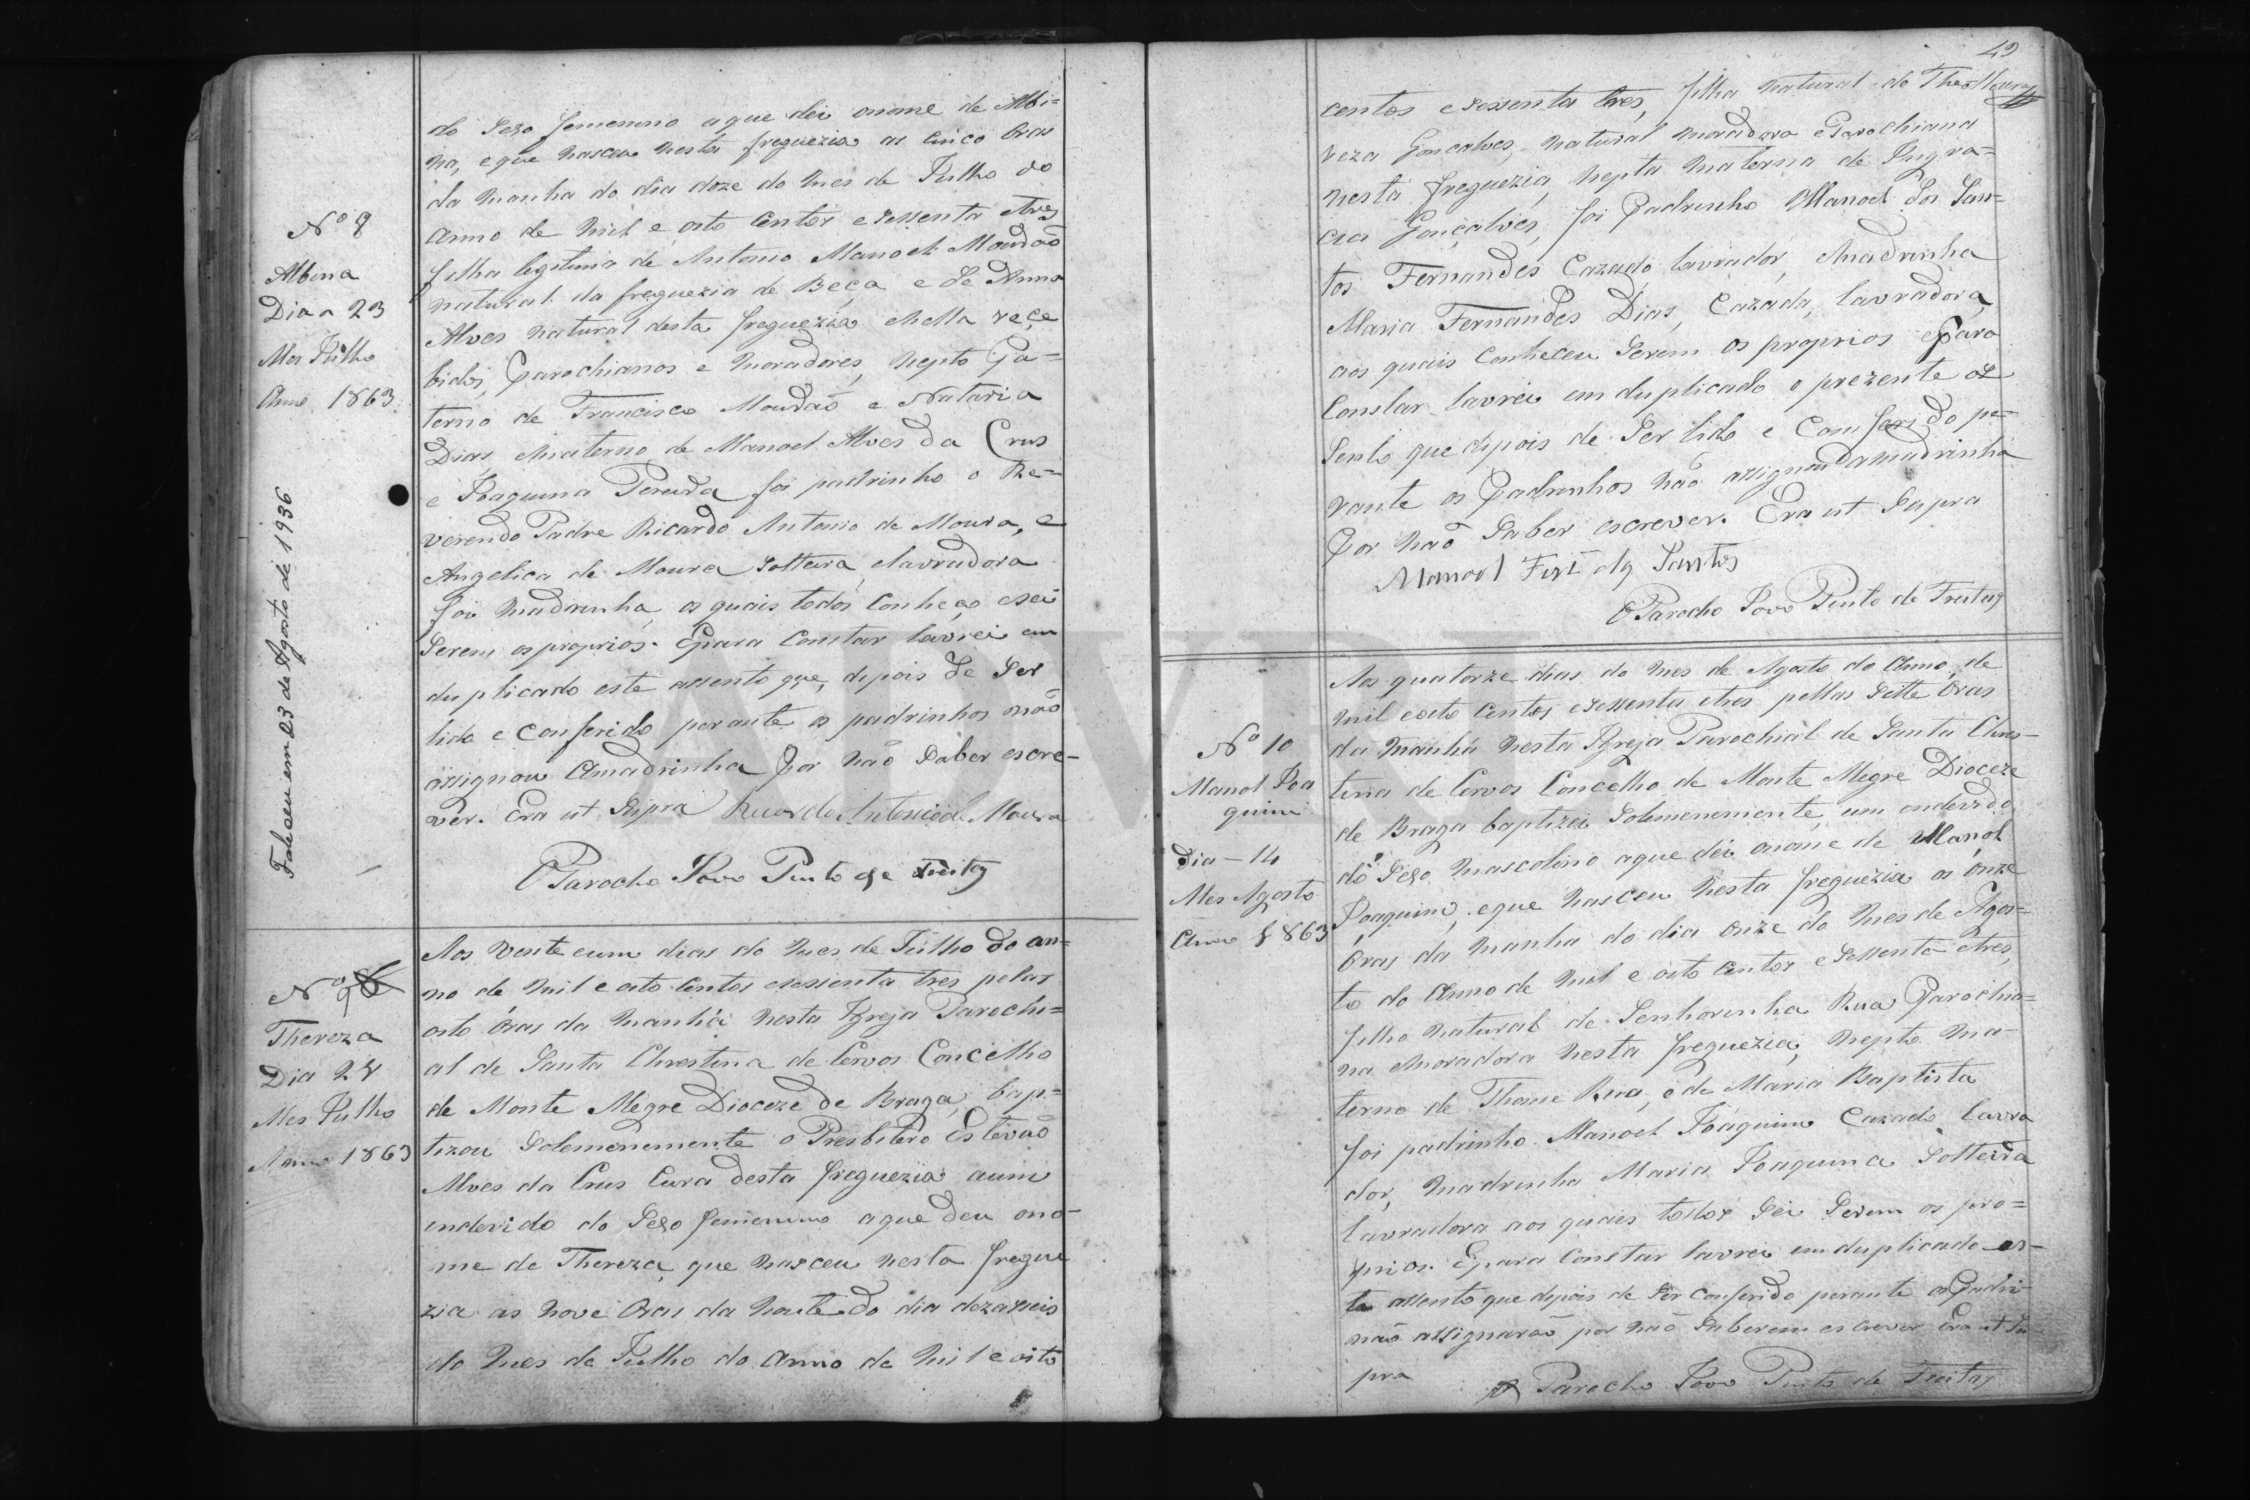 Nº 8
Albina
Dia 23
Mes Julho
Anno 1863
Faleceu em 23 de Agosto de 1936
do Sexo femenino a que dei onome de Albi=
na, e que nasceu nesta freguezia as cinco oras
da manha do dia doze do mes de Julho do
anno de mil e oito centos e sessenta etres
filha legitima de Antonio Manoel Mourão
natural da freguezia de Beça e de Anna
Alves natural desta freguezia enella rece
bidos, Parochianos e moradores, nepto Pa-
terno de Francisco Mourão e Nataria
Dias, ematerno de Manoel Alves da Crus
e Joaquina Pereida foi padrinho o Re=
verendo Padre Ricardo Antonio de Moura, e
Angelica de Moura Solteira, elavradora
foi madrinha, os quais todos conheço esei
Serem os proprios. Epara constar lavrei em
duplicado este assento que, depois de Ser
lido e conferido perante os padrinhos não
assignou amadrinha por não Saber escre-
ver. Era ut Supra Ricardo Antonio de Moura
O Parocho João Pinto de Freitas
Nº 9
Thereza
Dia 21
Mes Julho
Anno 1863
Aos vente eum dias do mes de Julho do an=
no de mil e oito centos esessenta tres pelas
oito óras da manhã nesta Igreja Parochi=
al de Santa Chrestina de Cervos Concelho
de Monte Alegre Dioceze de Braga, bap=
tizou Solemenemente o Presbitero Estevão
Alves da Crus Cura desta freguezia aum
enderido do Sexo femenino a que deu ono-
me de Thereza, que nasceu nesta fregue
zia as nove oras da noute do dia dezasseis
do mes de Julho do anno de mil e oito
49
centos esessenta tres, filha natural de The
reza Gonçalves, natural moradora eParochiana
nesta freguezia, nepta materna de Ingra=
cia Gonçalves, foi Padrinho Manoel dos San=
tos Fernandes Cazado lavrador, eMadrinha
Maria Fernandes Dias, Cazada, lavradora,
aos quais conheceu Serem os proprios epara
Constar lavrei em duplicado o prezente as
Sento que depois de Ser lido e Conferido pe=
rante os Padrinhos não assignou amadrinha
por não Saber escrever. Era ut Supra
Manoel Frz dos Santos
O Parocho João Pinto de Freitas
Nº 10
Manoel Joa
quim
Dia - 14
Mes Agosto
Anno 1863
Aos quatorze dias do mes de Agosto do Anno de
mil eoito centos esessenta etres pellas Sette oras
da manhã nesta Igreja Parochial de Santa Chres-
tina de Cervos Concelho de Monte Alegre Dioceze
de Braga baptizei Solemenemente, um enderido
do Sexo mascolino aque dei onome de Manoel
Joaquim, eque nasceu nesta freguezia as onze
óras da manha do dia onze do mes de Agos=
to do Anno de mil e oito centos eSessenta etres,
filho natural de Senhorinha Rua Parochia=
na emoradora nesta freguezia, nepto ma-
terno de Thome Rua, e de Maria Baptista
foi padrinho Manoel Joaquim Cazado lavra
dor, madrinha Maria Joaquina Solteira
lavradora aos quais todos Sei Serem os pro=
prios. Epara constar lavrei em duplicado es-
te assento que depois de Ser conferido perante os Padri
não assignarão por não Saberem escrever Era ut Su
pra
O Parocho João Pinto de Freitas